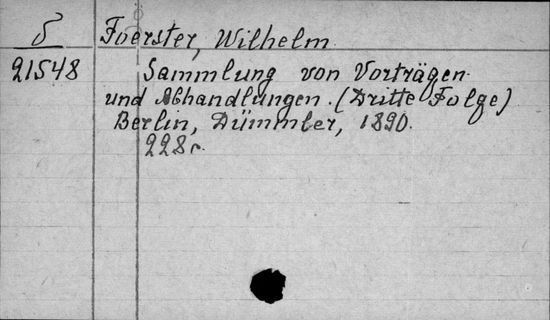 δ Foerster, Wilhelm
21548 Sammlung von Vorträgen
und Abhandlungen. (Dritte Folge)
Berlin, Dümmler, 1890.
228 c.